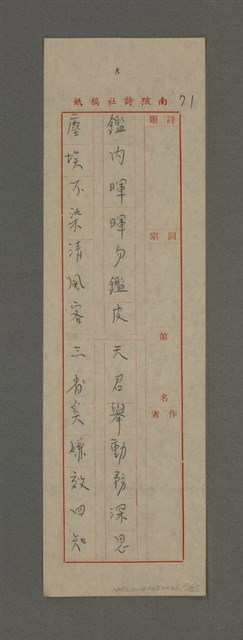 南陔詩社稿紙
71
詩題
詞宗
第 名
作者
鑑內暉暉勿鑑皮 天君舉動務深思
塵埃不染清風客 三省奚嫌效四知